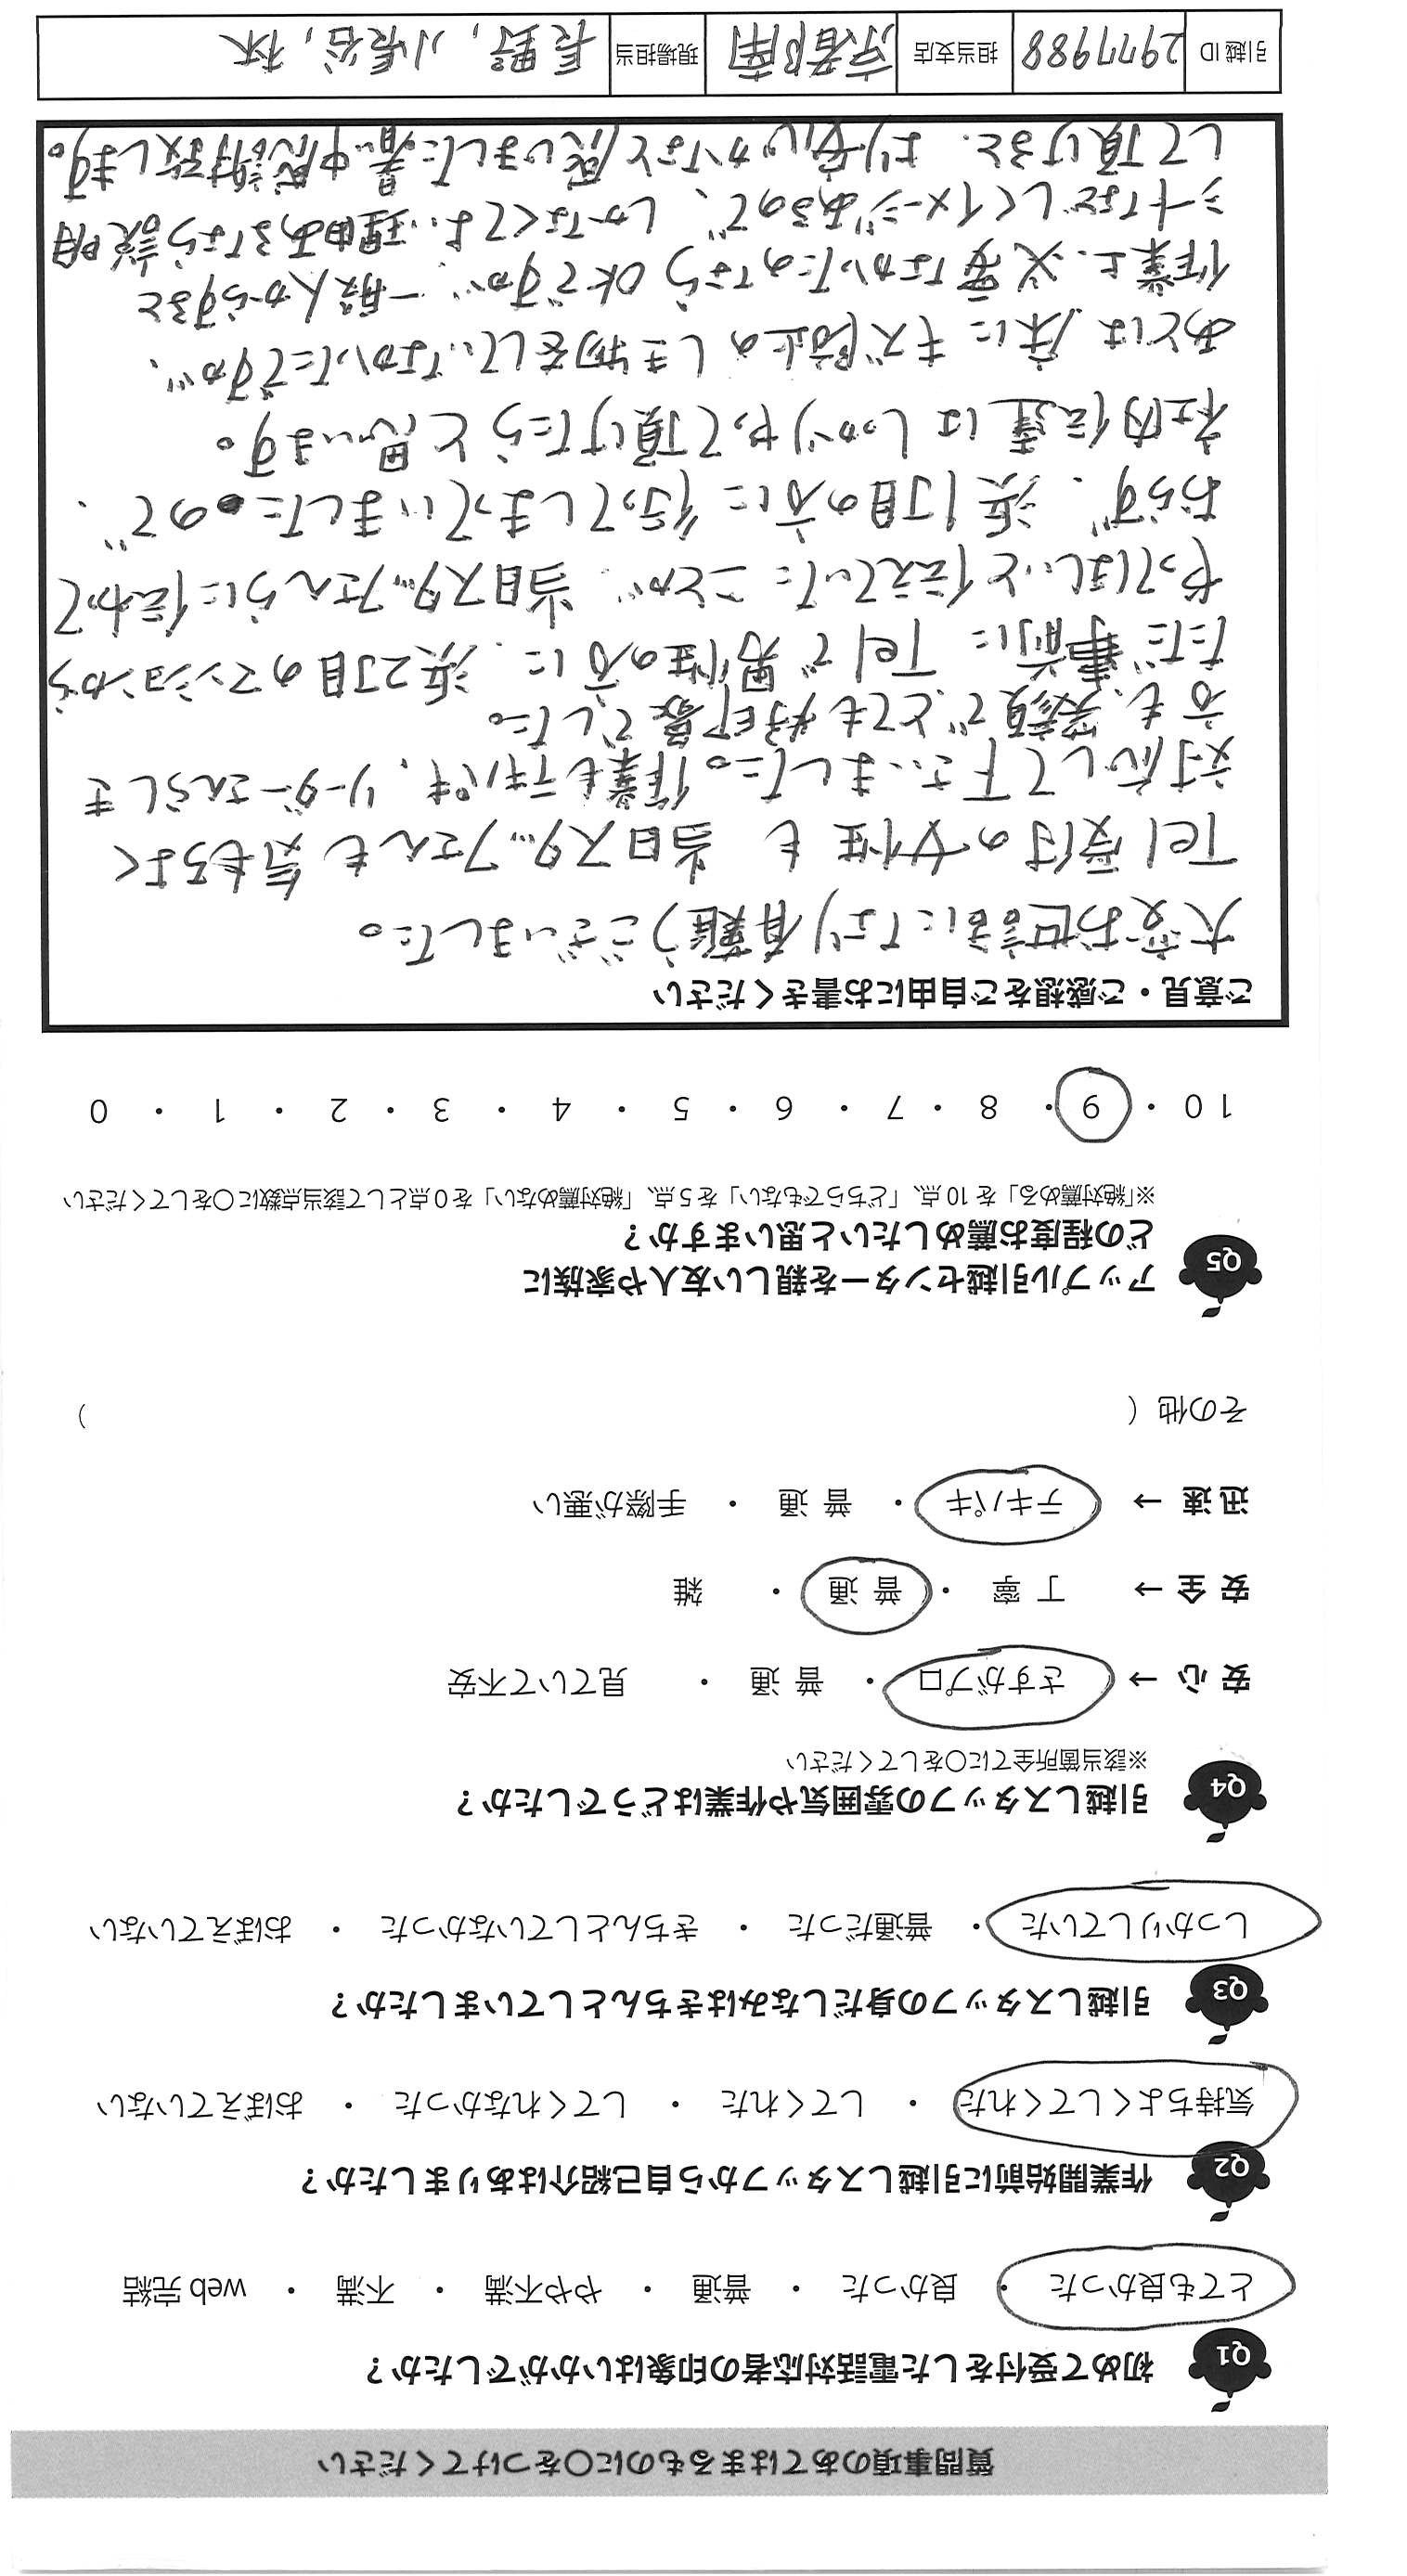 質問事項のあてはまるものに〇をつけてください
Q1 初めて受付をした電話対応者の印象はいかがでしたか？
とても良かった ・ 良かった ・ 普通 ・ やや不満 ・ 不満 ・ web 完結
Q2 作業開始前に引越しスタッフから自己紹介はありましたか？
気持ちよくしてくれた ・ してくれた ・ してくれなかった ・ おぼえていない
Q3 引越しスタッフの身だしなみはきちんとしていましたか？
しっかりしていた ・ 普通だった ・ きちんとしていなかった ・ おぼえていない
Q4 引越しスタッフの雰囲気や作業はどうでしたか？
※該当箇所全てに〇をしてください
安 心 → さすがプロ ・ 普 通 ・ 見ていて不安
安 全 → 丁 寧 ・ 普 通 ・ 雑
迅 速 → テキパキ ・ 普 通 ・ 手際が悪い
その他 (　　　)
Q5 アップル引越センターを親しい友人や家族に
どの程度お薦めしたいと思いますか？
※「絶対薦める」を 10 点、「どちらでもない」を 5 点、「絶対薦めない」を 0 点として該当点数に〇をしてください
10 ・ 9 ・ 8 ・ 7 ・ 6 ・ 5 ・ 4 ・ 3 ・ 2 ・ 1 ・ 0
ご意見・ご感想をご自由にお書きください
大変お世話になり有難うございました。
Tel受付の女性も 当日スタッフさんも 気もちよく
対応して下さいました。作業もテキパキ、リーダーさんらしき
方も、笑顔で、とても好印象でした。
ただ事前に Telで男性の方に、浜2丁目のマンションから
やってほしいと伝えていたことが、当日スタッフさんらに伝わて
おらず、浜1丁目の方に行ってしまっていましたので、
社内伝達はしっかりやって頂けたらと思います。
あとは、床にキズ防止のしき物をしていなかったですが、
作業上、必要なかったのならOKですが、一般人からすると
シートなどしくイメージあるので、しかなくてよい理由あるなら説明
して頂けると、より安心かなと感じました。暑い中感謝致します。
引越 ID 2977988 担当支店 京都南 現場担当 長野, 小長谷, 林